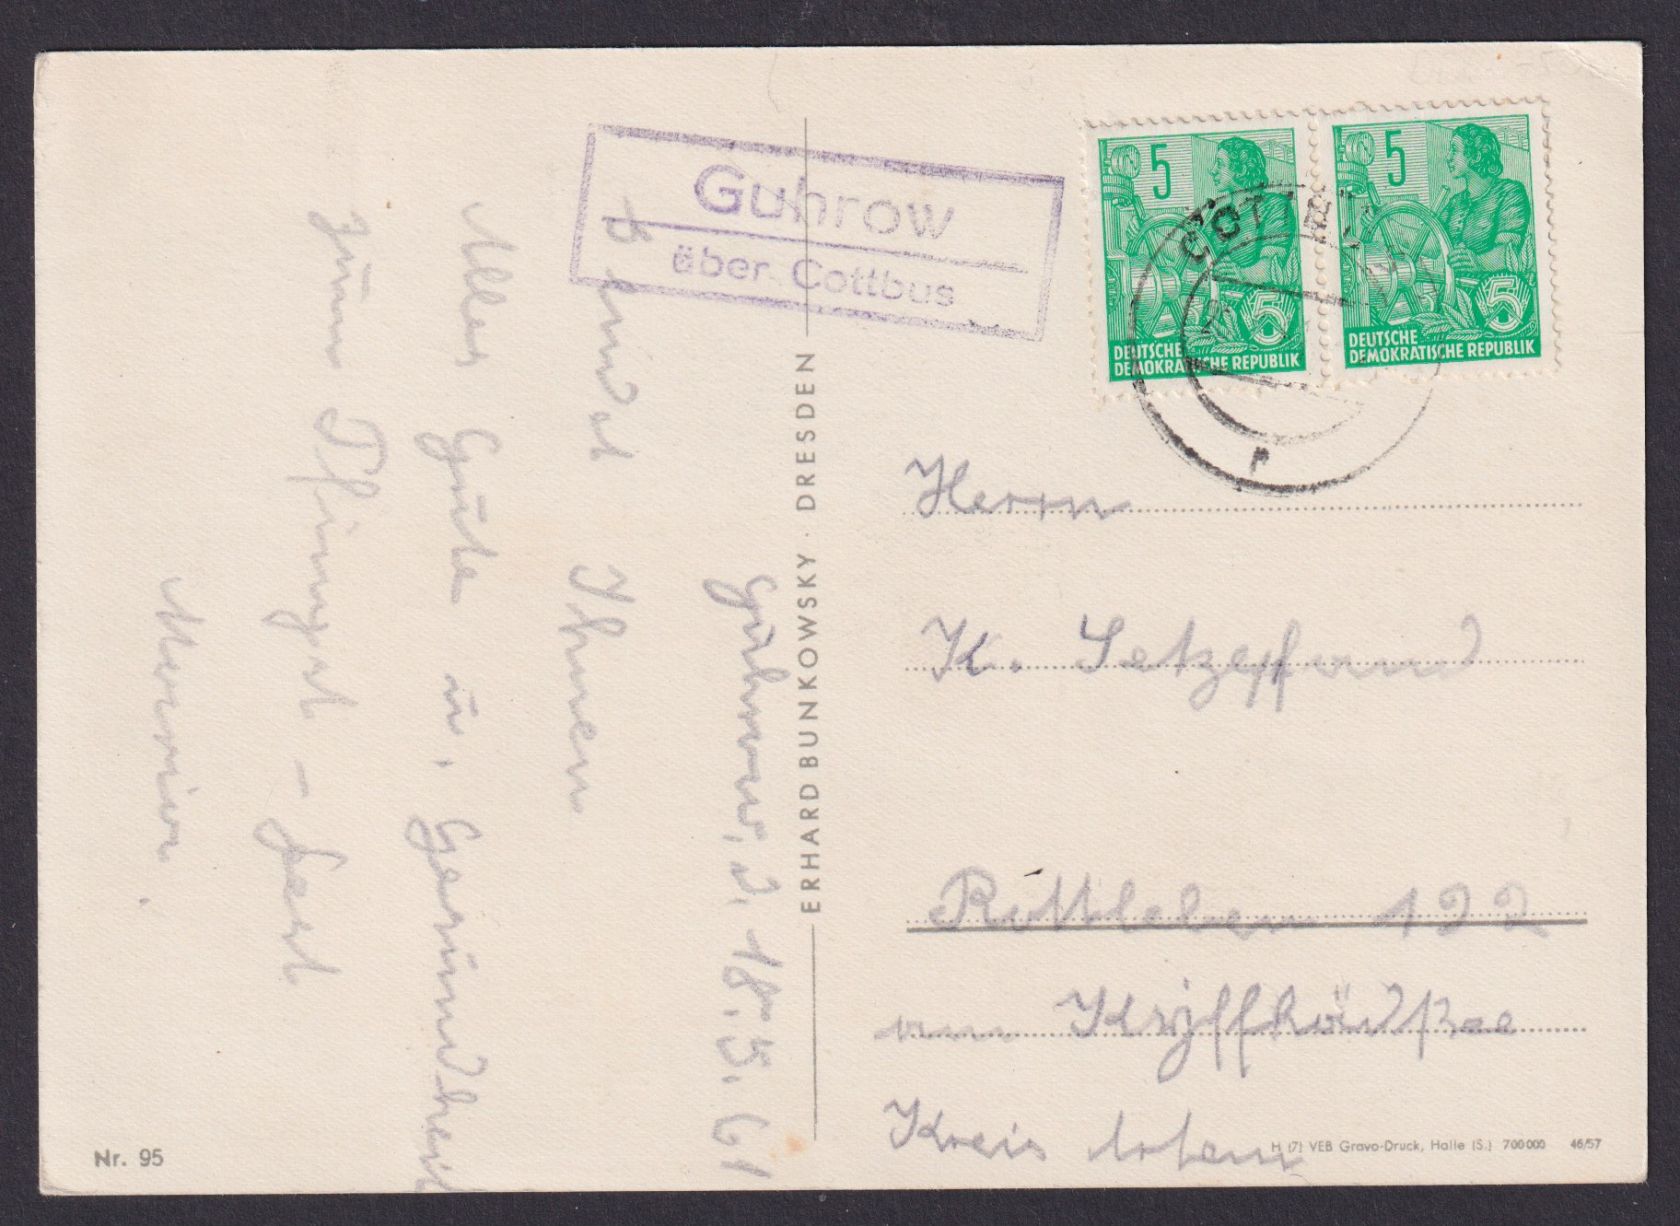 Guhrow
über Cottbus
5
5
DEUTSCHE
DEMOKRATISCHE REPUBLIK
5
5
DEUTSCHE
DEMOKRATISCHE REPUBLIK
COTTBUS
Guhrow, d. 18.5.61
Ihnen
Alles Gute u. Gesundheit
zum Pfingst - Fest
ERHARD BUNKOWSKY · DRESDEN
Herrn
K. Setzepfand
Rottleben 122
am Kyffhäußer
Kreis Artern
Nr. 95
H (7) VEB Gravo-Druck, Halle (S.) 700000 46/57